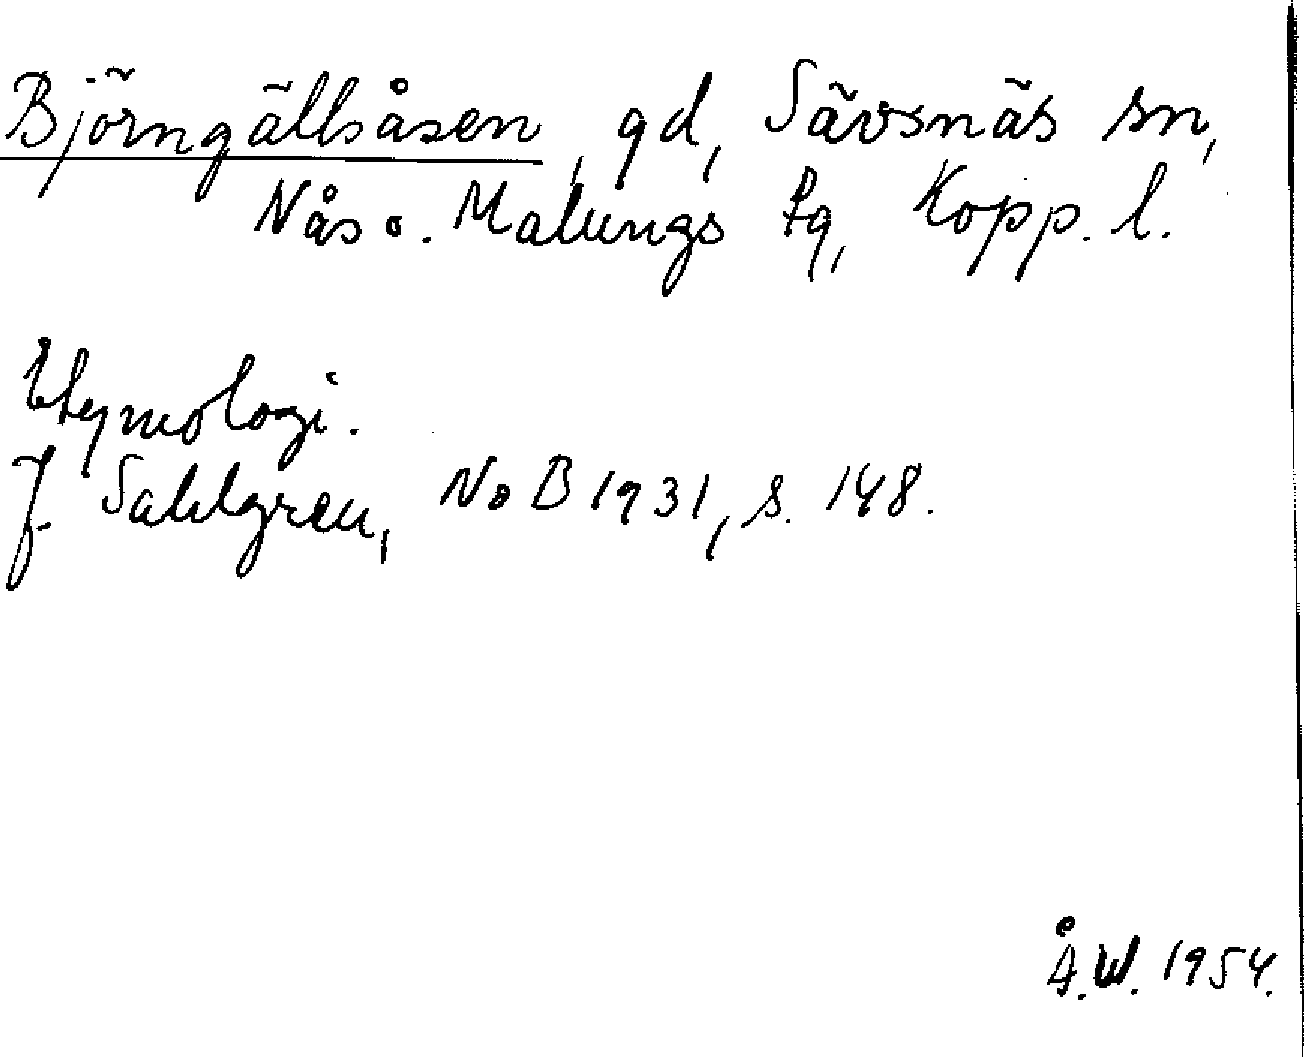 Björngällsåsen, gd, Sävsnäs sn,
Nås o. Malungs fg, Kopp. l.
Etymologi.
J. Sahlgren, NoB 1931, s. 148.
Å.W. 1954.